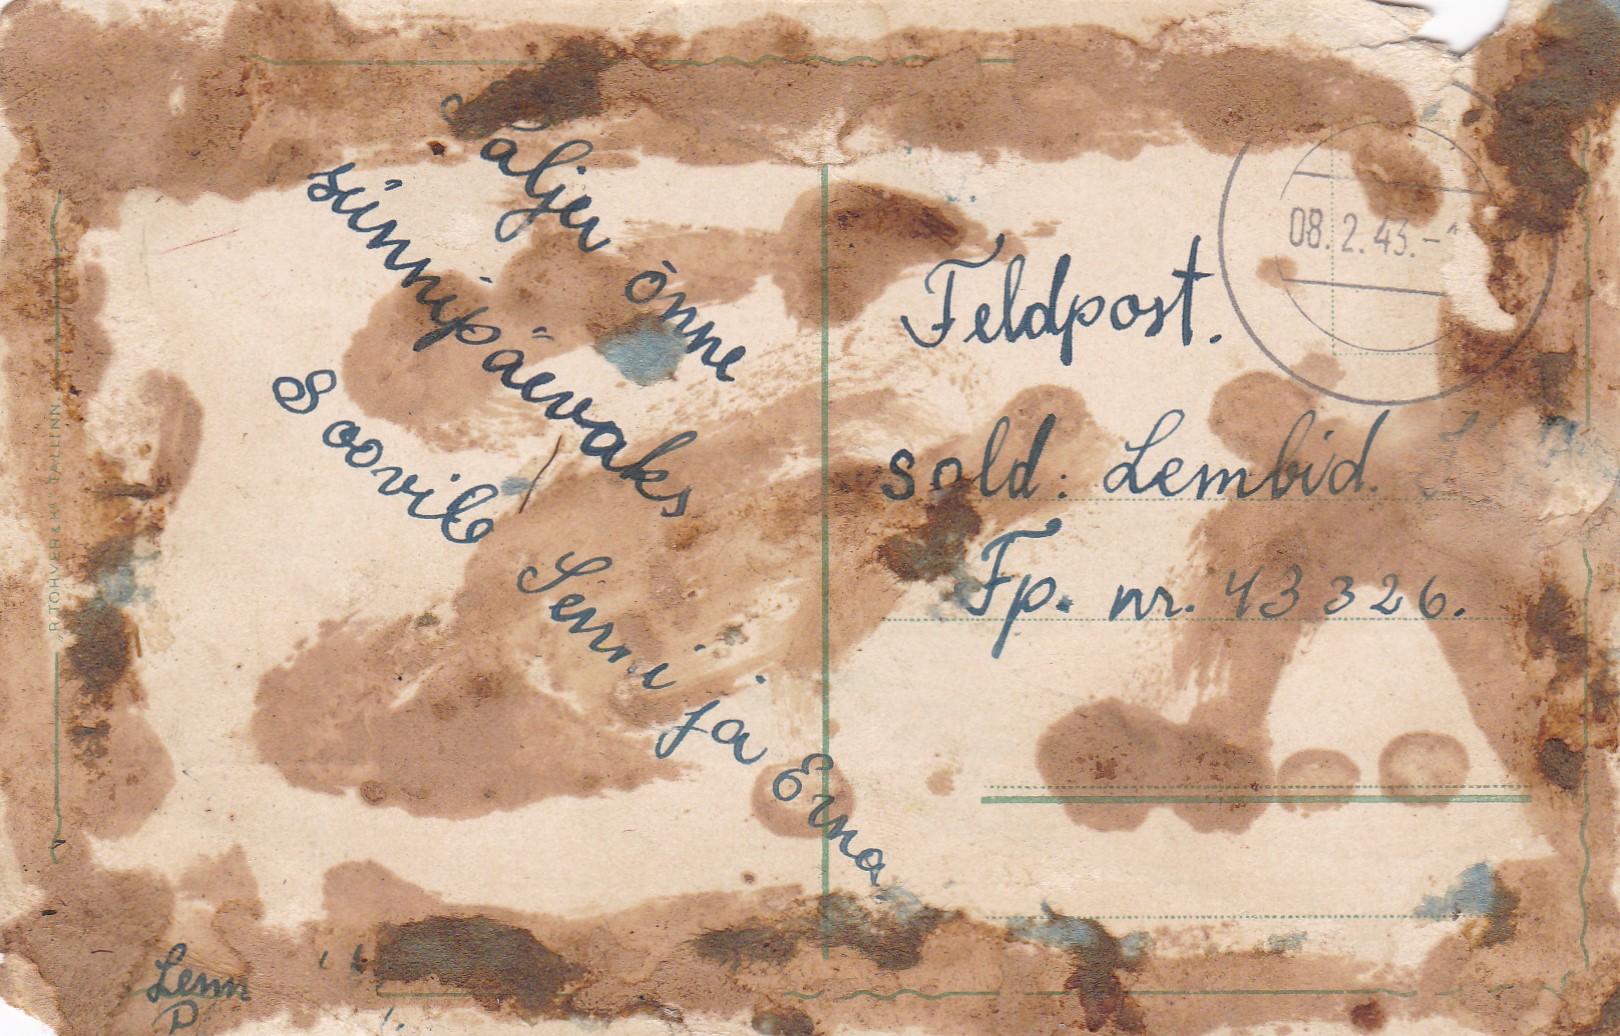 Palju õnne
sünnipäevaks
Soovib Senni ja Erna
Feldpost.
sold: Lembid.
Fp. nr. 43326.
08.2.43.-
R. TOHVER & Ko. TALLINN
Lenn